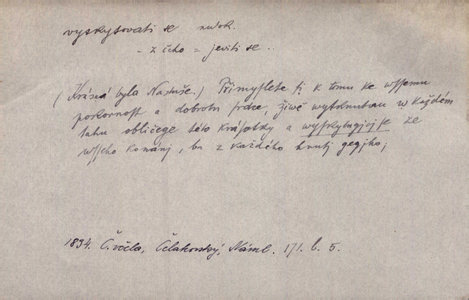 vyskytovati se nedok.
– z čeho = jeviti se..
(Krásná byla Nastuše.) Přimyslete si k tomu ke wssemu
pokornost a dobrotu srdce, živě wytknutau w každém
tahu obličege této krásotky a wyskytugjcj se ze
wsseho konánj, ba z každého hnutj gegjho;
1834. Č. včela, Čelakovský, 171. b. 5.